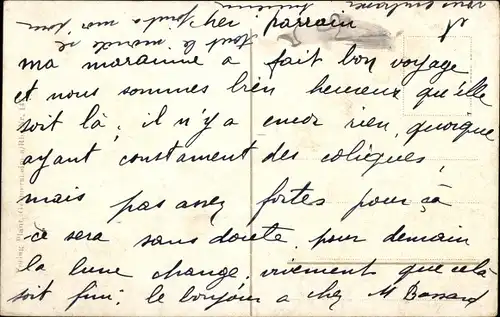 cher parrain
ma marainne a fait bon voyage
et nous sommes bien heureux qu'elle
soit là, il n'y a encor rien, quoique
ayant constament des coliques,
mais pas assez fortes pour ça
ce sera sans doute pour demain
la lune change. vivement que cela
soit fini; le bonjour a chez M Bassard
tout le monde se
joint a moi pour
vous embrasser